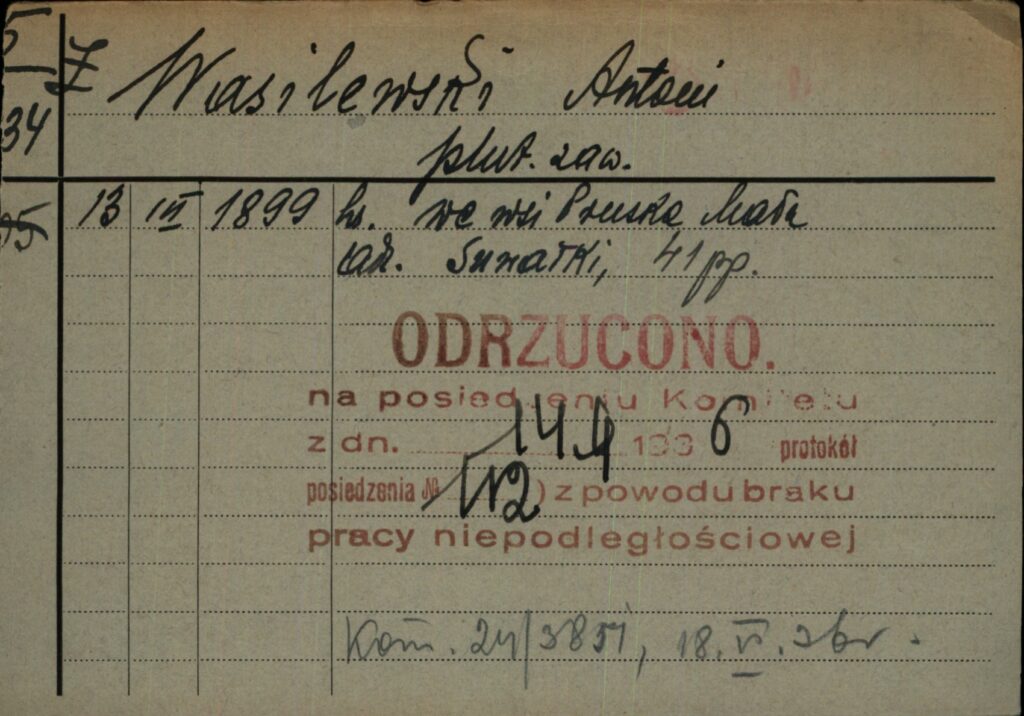 5
34
Z Wasilewski Antoni
plut. zaw.
13 III 1899 we wsi Pruska Mała
Suwałki, 41 pp.
ODRZUCONO.
na posiedzeniu Komitetu
z dn. 14 4 1936 protokół
posiedzenia № 12) z powodu braku
pracy niepodległościowej
Kom. 24/3851, 18. VI.